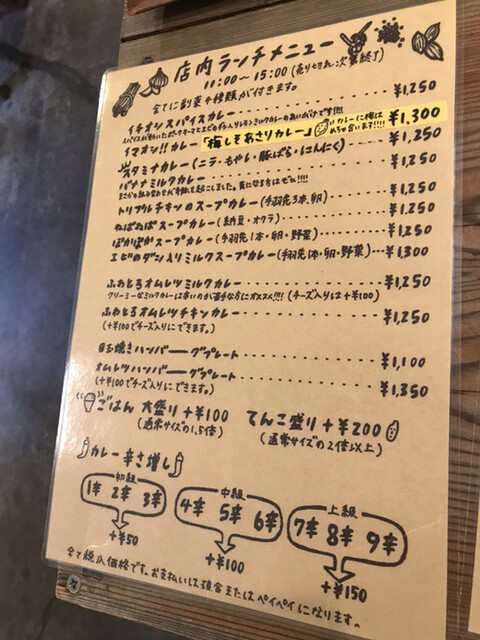 店内ランチメニュー
11:00〜15:00 (売り切れ次第終了)
全てに副菜4種類が付きます。
イチオシスパイスカレー ¥1,250
イマオシ!!カレー「梅しそあさりカレー」 カレーに梅はめちゃ合います!!!! ¥1,300
スタミナカレー(ニラ・もやし・豚ばら・にんにく) ¥1,250
バナナミルクカレー ¥1,250
トリプルチキンのスープカレー(手羽先3本、卵) ¥1,250
ねばねばスープカレー(納豆・オクラ) ¥1,250
ぽかぽかスープカレー(手羽先1本・卵・野菜) ¥1,250
エビのダシ入りミルクスープカレー(手羽先1本・卵・野菜) ¥1,300
ふわとろオムレツミルクカレー ¥1,250
クリーミーなミルクカレーは辛いのが苦手な方にオススメ!!!! (チーズ入りは+¥100)
ふわとろオムレツチキンカレー ¥1,250
(+¥100でチーズ入りにできます。)
目玉焼きハンバーグプレート ¥1,100
オムレツハンバーグプレート ¥1,350
(+¥100でチーズ入りにできます。)
ごはん 大盛り +¥100 てんこ盛り +¥200
(通常サイズの1.5倍) (通常サイズの2倍以上)
カレー辛さ増し
初級 中級 上級
1辛 2辛 3辛 4辛 5辛 6辛 7辛 8辛 9辛
+¥50 +¥100 +¥150
全て税込価格です。お支払いは現金またはペイペイになります。